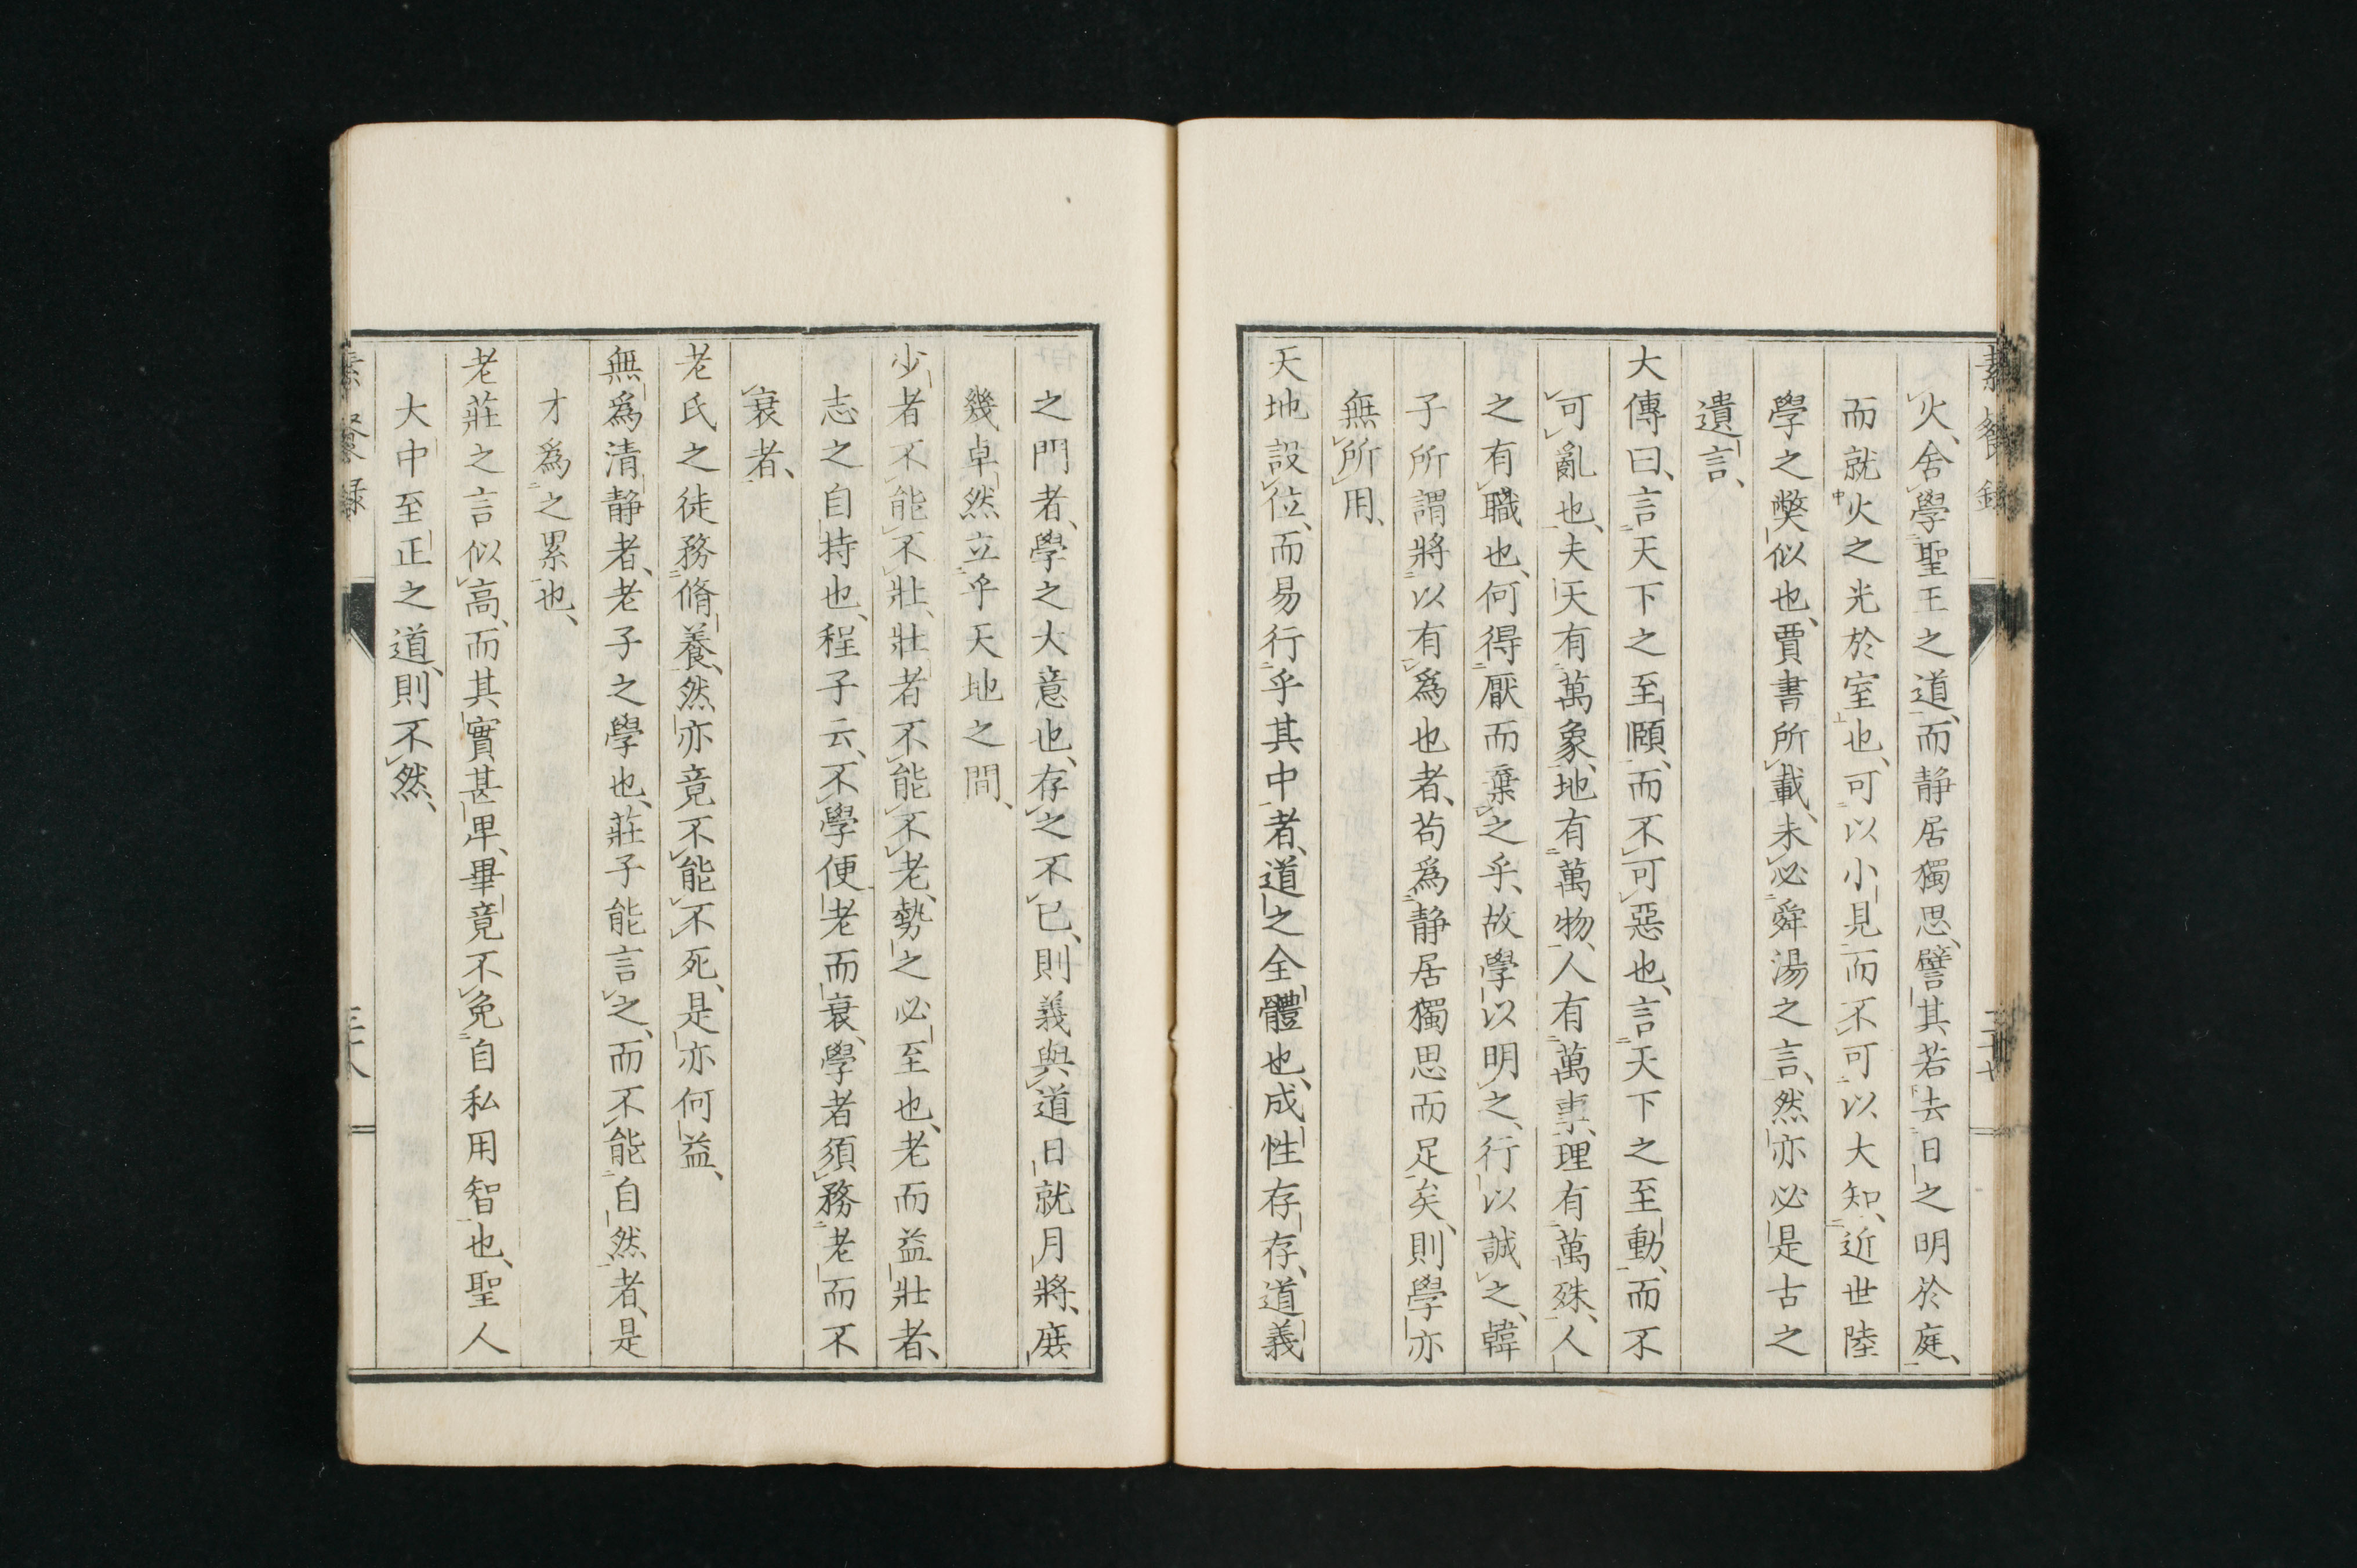 素餐錄
火、舍學聖王之道、而静居獨思、譬其若去日之明於庭、
而就火之光於室也、可以小見而不可以大知、近世陸
學之獘似也、賈書所載、未必舜湯之言、然亦必是古之
遺言、
大傳曰、言天下之至賾、而不可惡也、言天下之至動、而不
可亂也、夫天有萬象、地有萬物、人有萬事、理有萬殊、人
之有職也、何得厭而棄之乎、故學以明之、行以誠之、韓
子所謂將以有爲也者、苟爲静居獨思而足矣、則學亦
無所用、
天地設位、而易行乎其中者、道之全體也、成性存存、道義
之門者、學之大意也、存之不已、則義與道日就月將、庶
幾卓然立乎天地之間、
少者不能不壯、壯者不能不老、勢之必至也、老而益壯者、
志之自持也、程子云、不學便老而衰、學者須務老而不
衰者、
老氏之徒務脩養、然亦竟不能不死、是亦何益、
無爲清静者、老子之學也、莊子能言之、而不能自然者、是
才爲之累也、
老莊之言似高、而其實甚卑、畢竟不免自私用智也、聖人
大中至正之道、則不然、
素餐錄
三十八